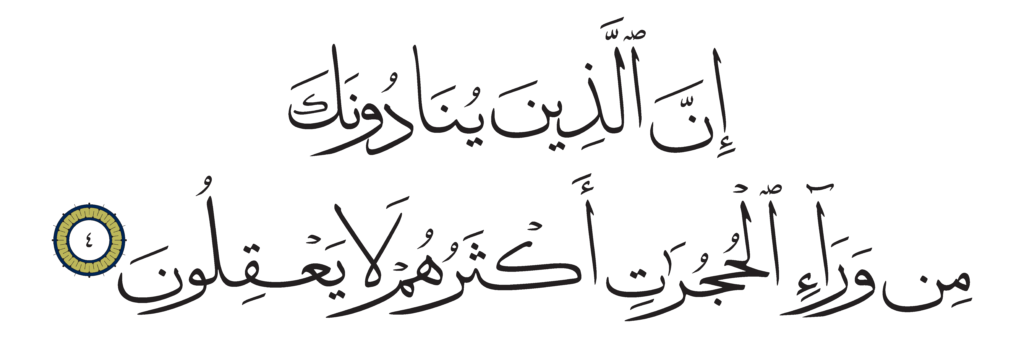 إِنَّ ٱلَّذِينَ يُنَادُونَكَ
مِن وَرَآءِ ٱلْحُجُرَٰتِ أَكْثَرُهُمْ لَا يَعْقِلُونَ ٤